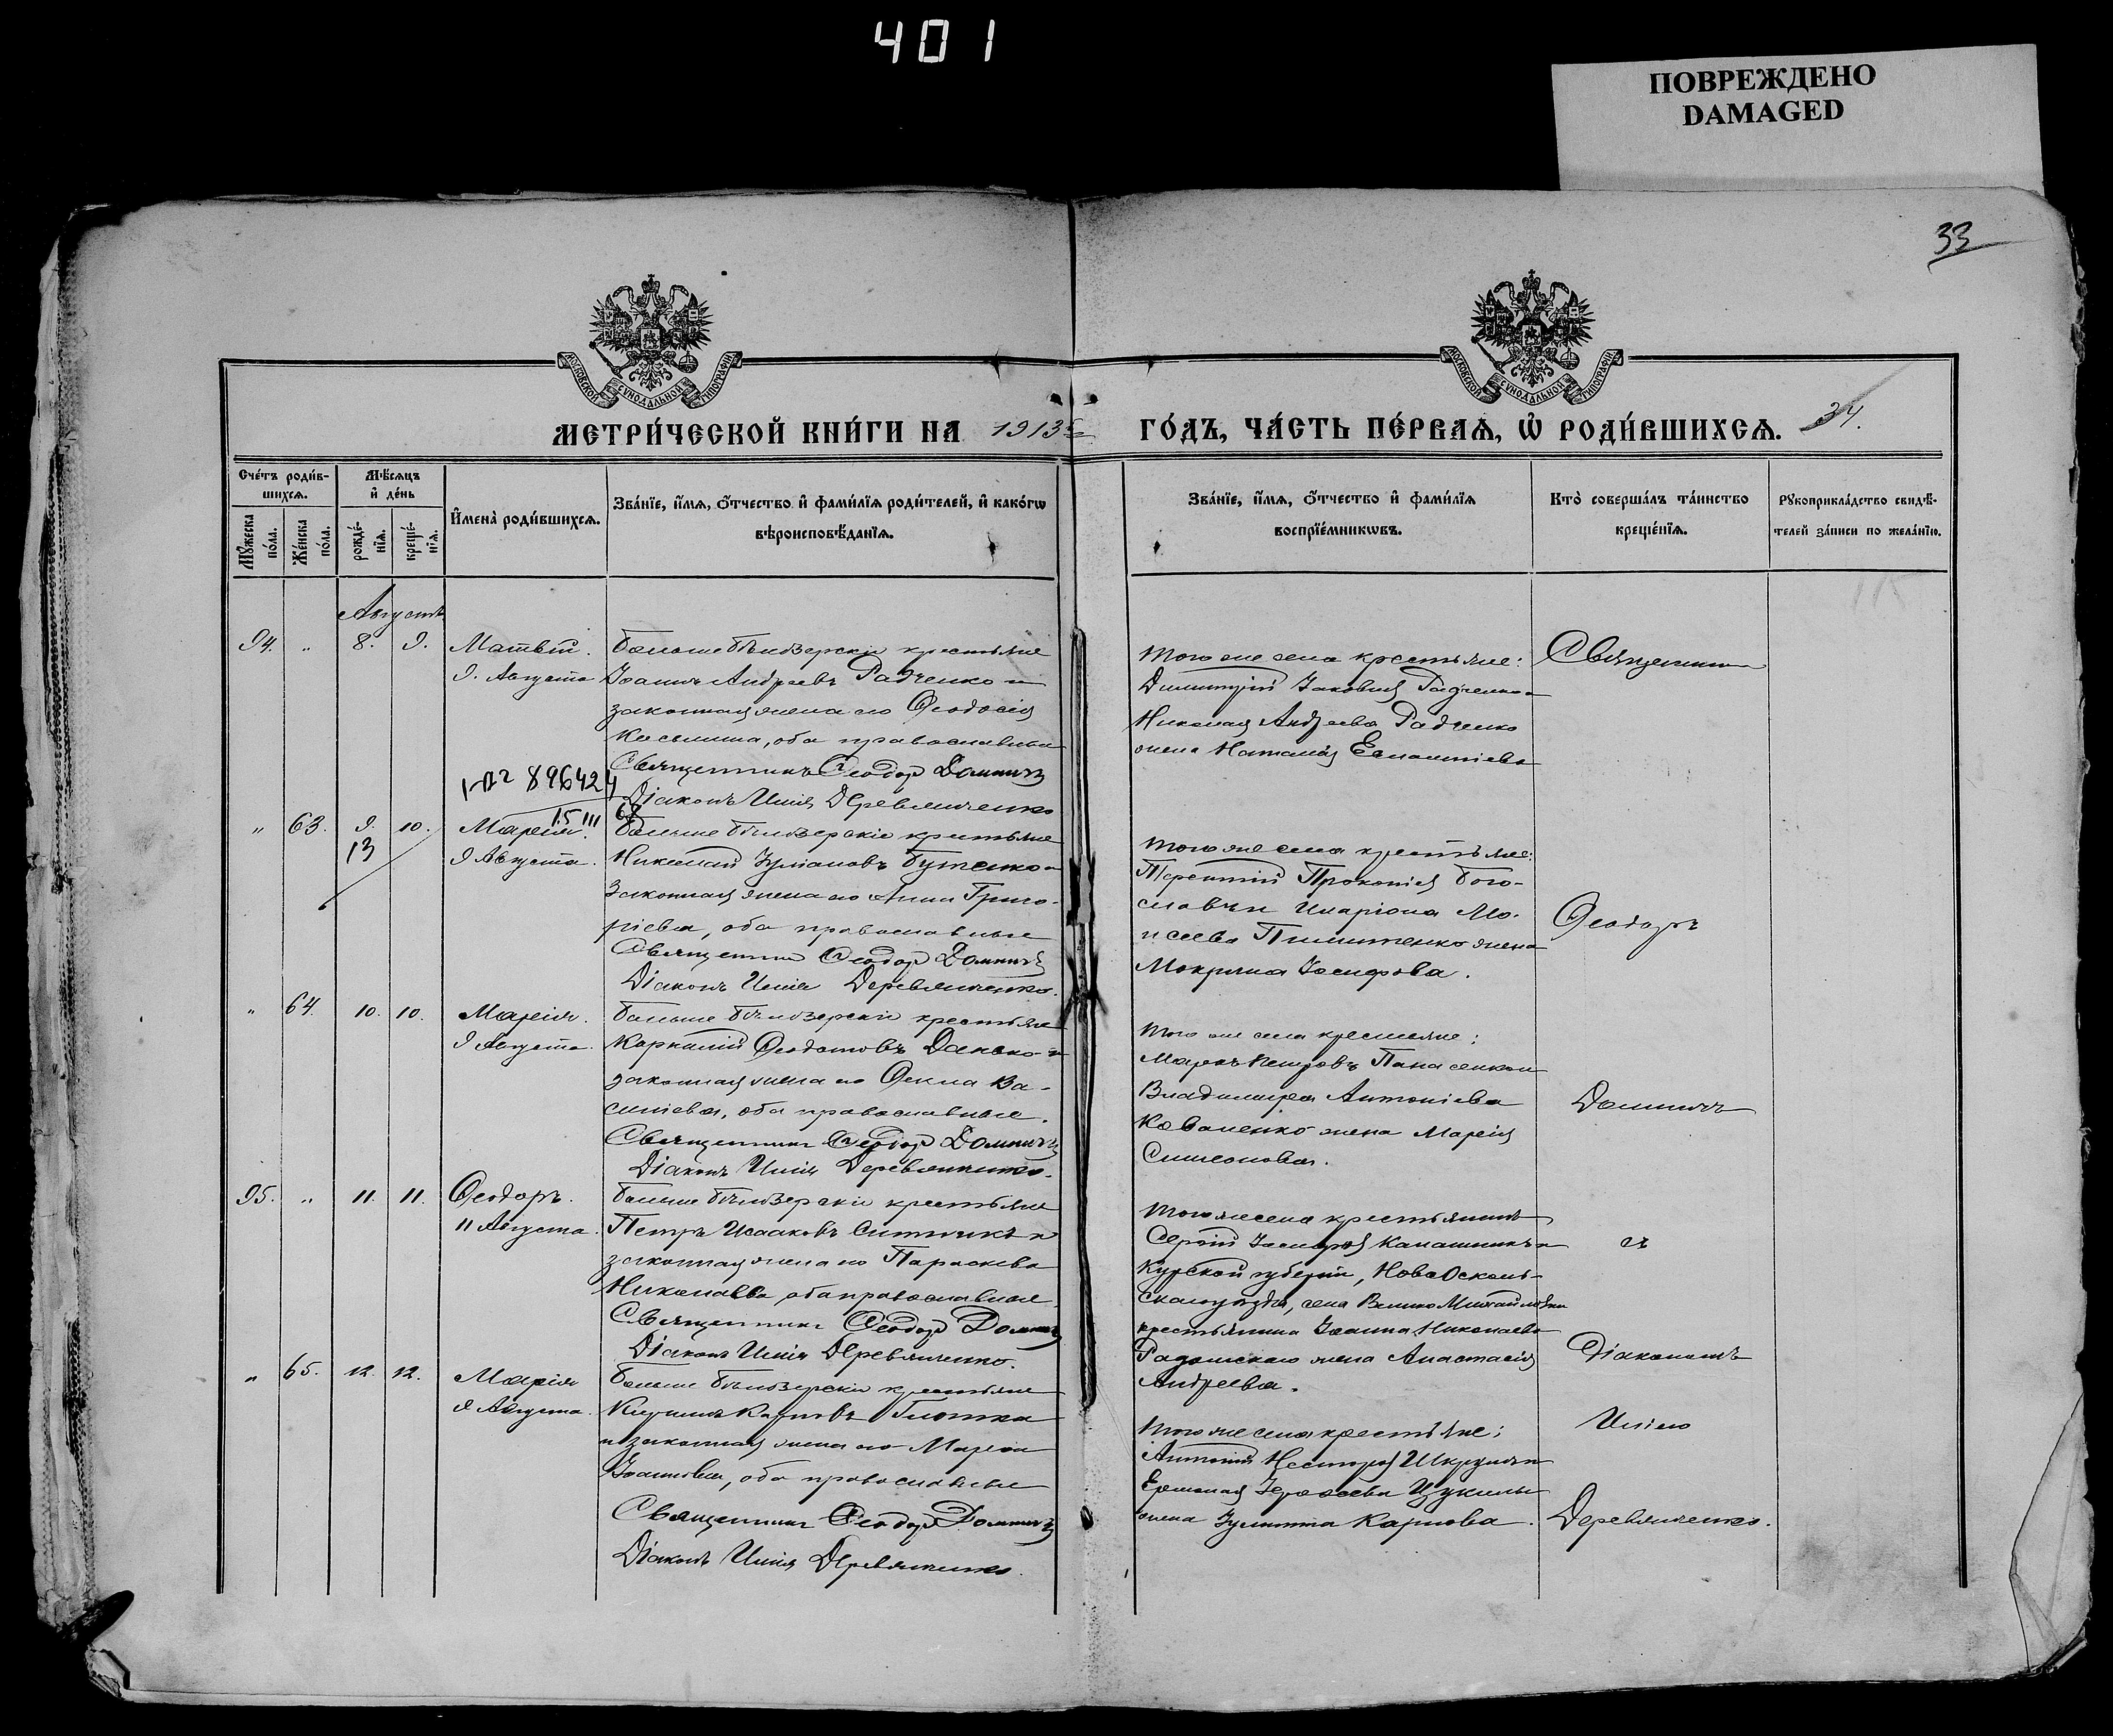 401
ПОВРЕЖДЕНО
DAMAGED
33
МОСКОВСКОЙ СУНОДАЛЬНОЙ ТИПОГРАФІИ
МОСКОВСКОЙ СУНОДАЛЬНОЙ ТИПОГРАФІИ
МЕТРИ́ЧЕСКОЙ КНИ́ГИ НА 1913
ГО́ДЪ, ЧА́СТЬ ПЕ́РВАѦ, Ѡ҆ РОДИ́ВШИХСѦ. 34.
Сче́тъ роди́в-
шихсѧ.
Мꙋ́жеска по́ла.
Же́нска по́ла.
Мѣ́сѧцъ
и҆ де́нь
рожде́-
нїѧ.
креще́-
нїѧ.
И҆мена̀ роди́вшихсѧ.
Зва́нїе, и҆́мѧ, ѻ҆́тчество и҆ фами́лїѧ роди́телей, и҆ како́гѡ
вѣроисповѣ́данїѧ.
Зва́нїе, и҆́мѧ, ѻ҆́тчество и҆ фами́лїѧ
воспрїе́мникѡвъ.
Кто̀ соверша́лъ та́инство
креще́нїѧ.
Рꙋкоприкла́дство свидѣ́-
телей за́писи по жела́нїю.
Августъ
94. " 8. 9. Матвій.
9. Августа
Больше Бѣлозерскіе крестьяне
Іоаннъ Андреевъ Радченко и
законная жена его Ѳеодосія
Косьмина, оба православные
Священникъ Ѳеодоръ Домничъ
Діаконъ Илія Деревянченко
того же села крестьяне:
Димитрій Іаковлев Радченко и
Николая Андреева Радченко
жена Наталія Евлампіева
Священник
896424
15 III 68
" 63. 9. 10. Марія.
13
9 Августа.
Больше Бѣлозерскіе крестьяне
Николай Іуліановъ Бутенко и
Законная жена его Анна Григо-
ріева, оба православные
Священник Ѳеодор Домничъ
Діаконъ Илія Деревянченко.
того же села крестьяне:
Терентій Прокопіев Бого-
славъ и Иларіона Мо-
исеева Пилипенко жена
Мокрина Іосифова.
Ѳеодоръ
" 64. 10. 10. Марія.
9 Августа.
Больше Бѣлозерскіе крестьяне
Ѳеодотовъ и
законная жена его Ѳекла Ва-
силіева, оба православные.
Священникъ Ѳеодор Домничъ
Діаконъ Илія Деревянченко.
того же села крестьяне:
Маркъ Петровъ Панасенко и
Владимира Антоніева
Коваленко жена Марія
Симеонова.
Домничъ
95. " 11. 11. Ѳеодоръ.
11 Августа.
Больше Бѣлозерскіе крестьяне
Петръ Исааковъ Ситникъ и
законная жена его Параскева
Николаева, оба православные
Священникъ Ѳеодор Домничъ
Діаконъ Илія Деревянченко.
того же села крестьянинъ
Сергій Калашникъ и
Курской губерніи, Ново Осколь-
скаго уѣзда, села Велико Михайловки
крестьянина Іоанна Николаева
жена Анастасія
Андреева.
съ
Діакономъ
" 65. 12. 12. Марія
9 Августа.
Больше Бѣлозерскіе крестьяне
Кириллъ Карповъ
и законная жена его Марія
Іоаннова, оба православные
Священникъ Ѳеодор Домничъ
Діаконъ Илія Деревянченко.
того же села крестьяне:
Антоній Несторов и
жена Іулитта Карпова.
Иліею
Деревянченко.